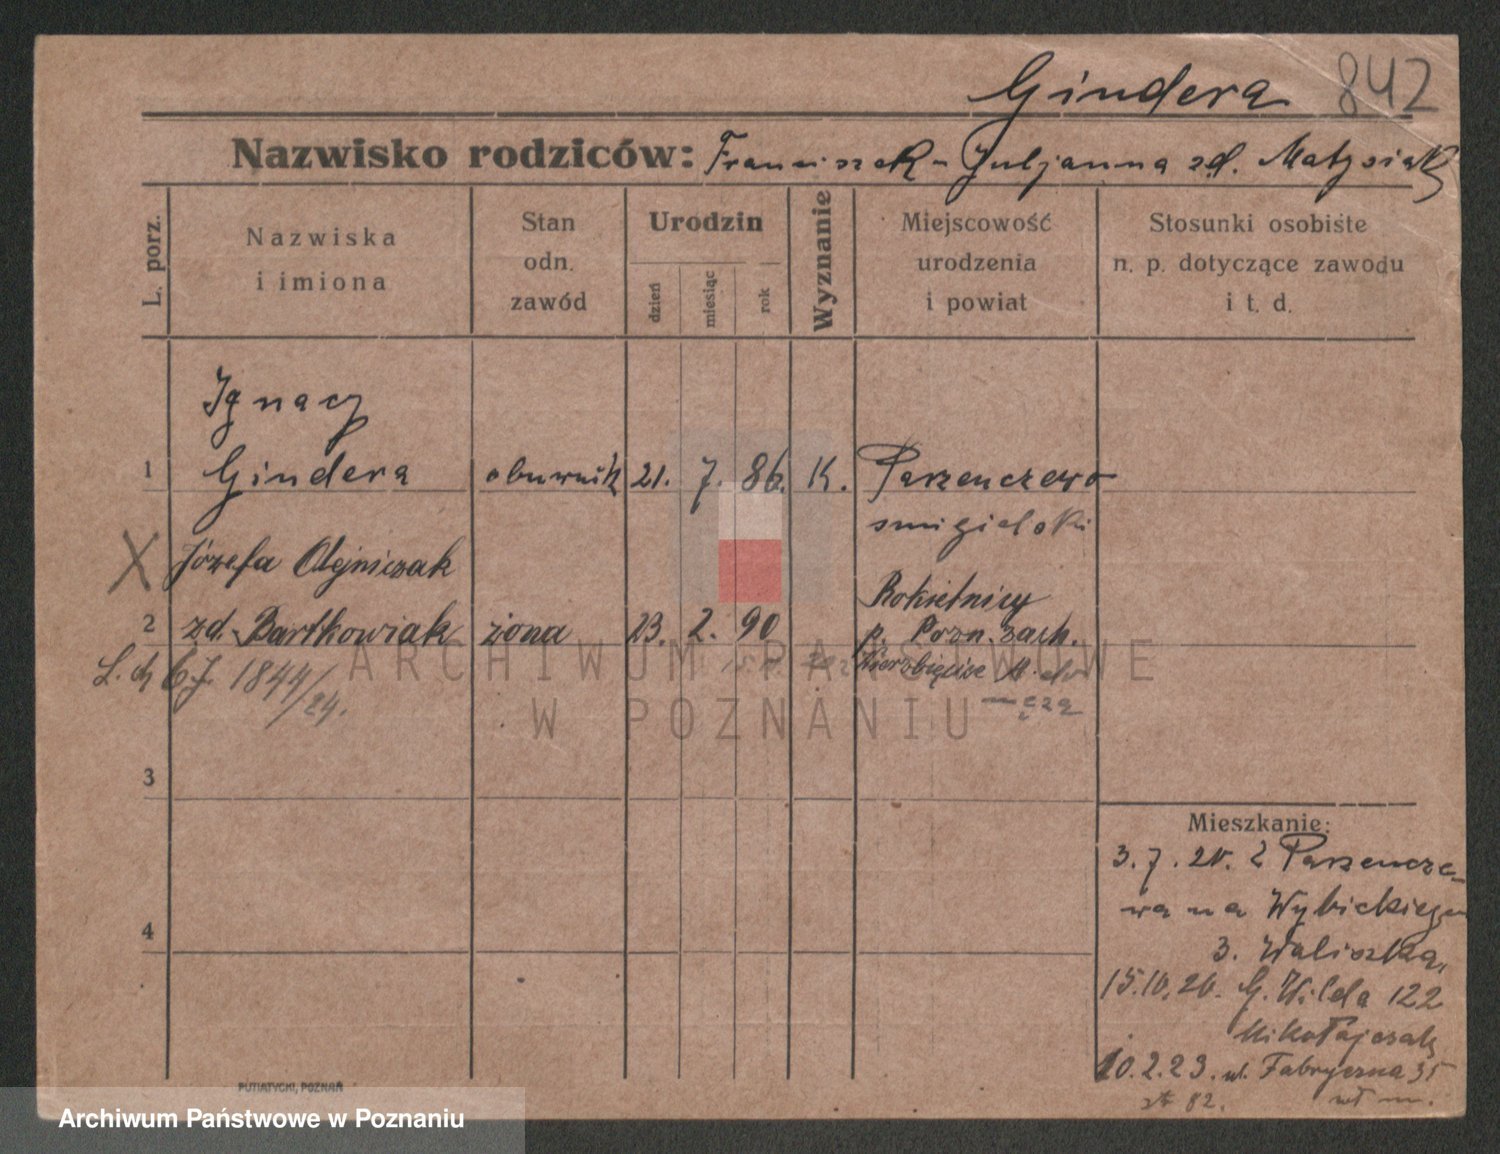 Gindera 842
Nazwisko rodziców: Franciszek - Juljanna zd. Matysiak
L. porz.
Nazwiska
i imiona
Stan
odn.
zawód
Urodzin
dzień
miesiąc
rok
Wyznanie
Miejscowość
urodzenia
i powiat
Stosunki osobiste
n. p. dotyczące zawodu
i t. d.
Ignacy
1 Gindera obuwnik 21. 7. 86. K. Parzenczewo
smigielski
X Józefa Olejniczak Rokietnicy
2 zd. Bartkowiak żona 23. 2. 90 p. Pozn. zach.
L. dz 6J 1844/24.
ARCHIWUM PAŃSTWOWE
W POZNANIU
3
Mieszkanie:
3.7.20. z Parzencze-
wa na Wybickiego
4 3. Waliszka.
15.10.20. G. Wilda 122
Mikołajczak
10.2.23. ul. Fabryczna 35
str 82.
PUTIATYCKI, POZNAŃ
Archiwum Państwowe w Poznaniu